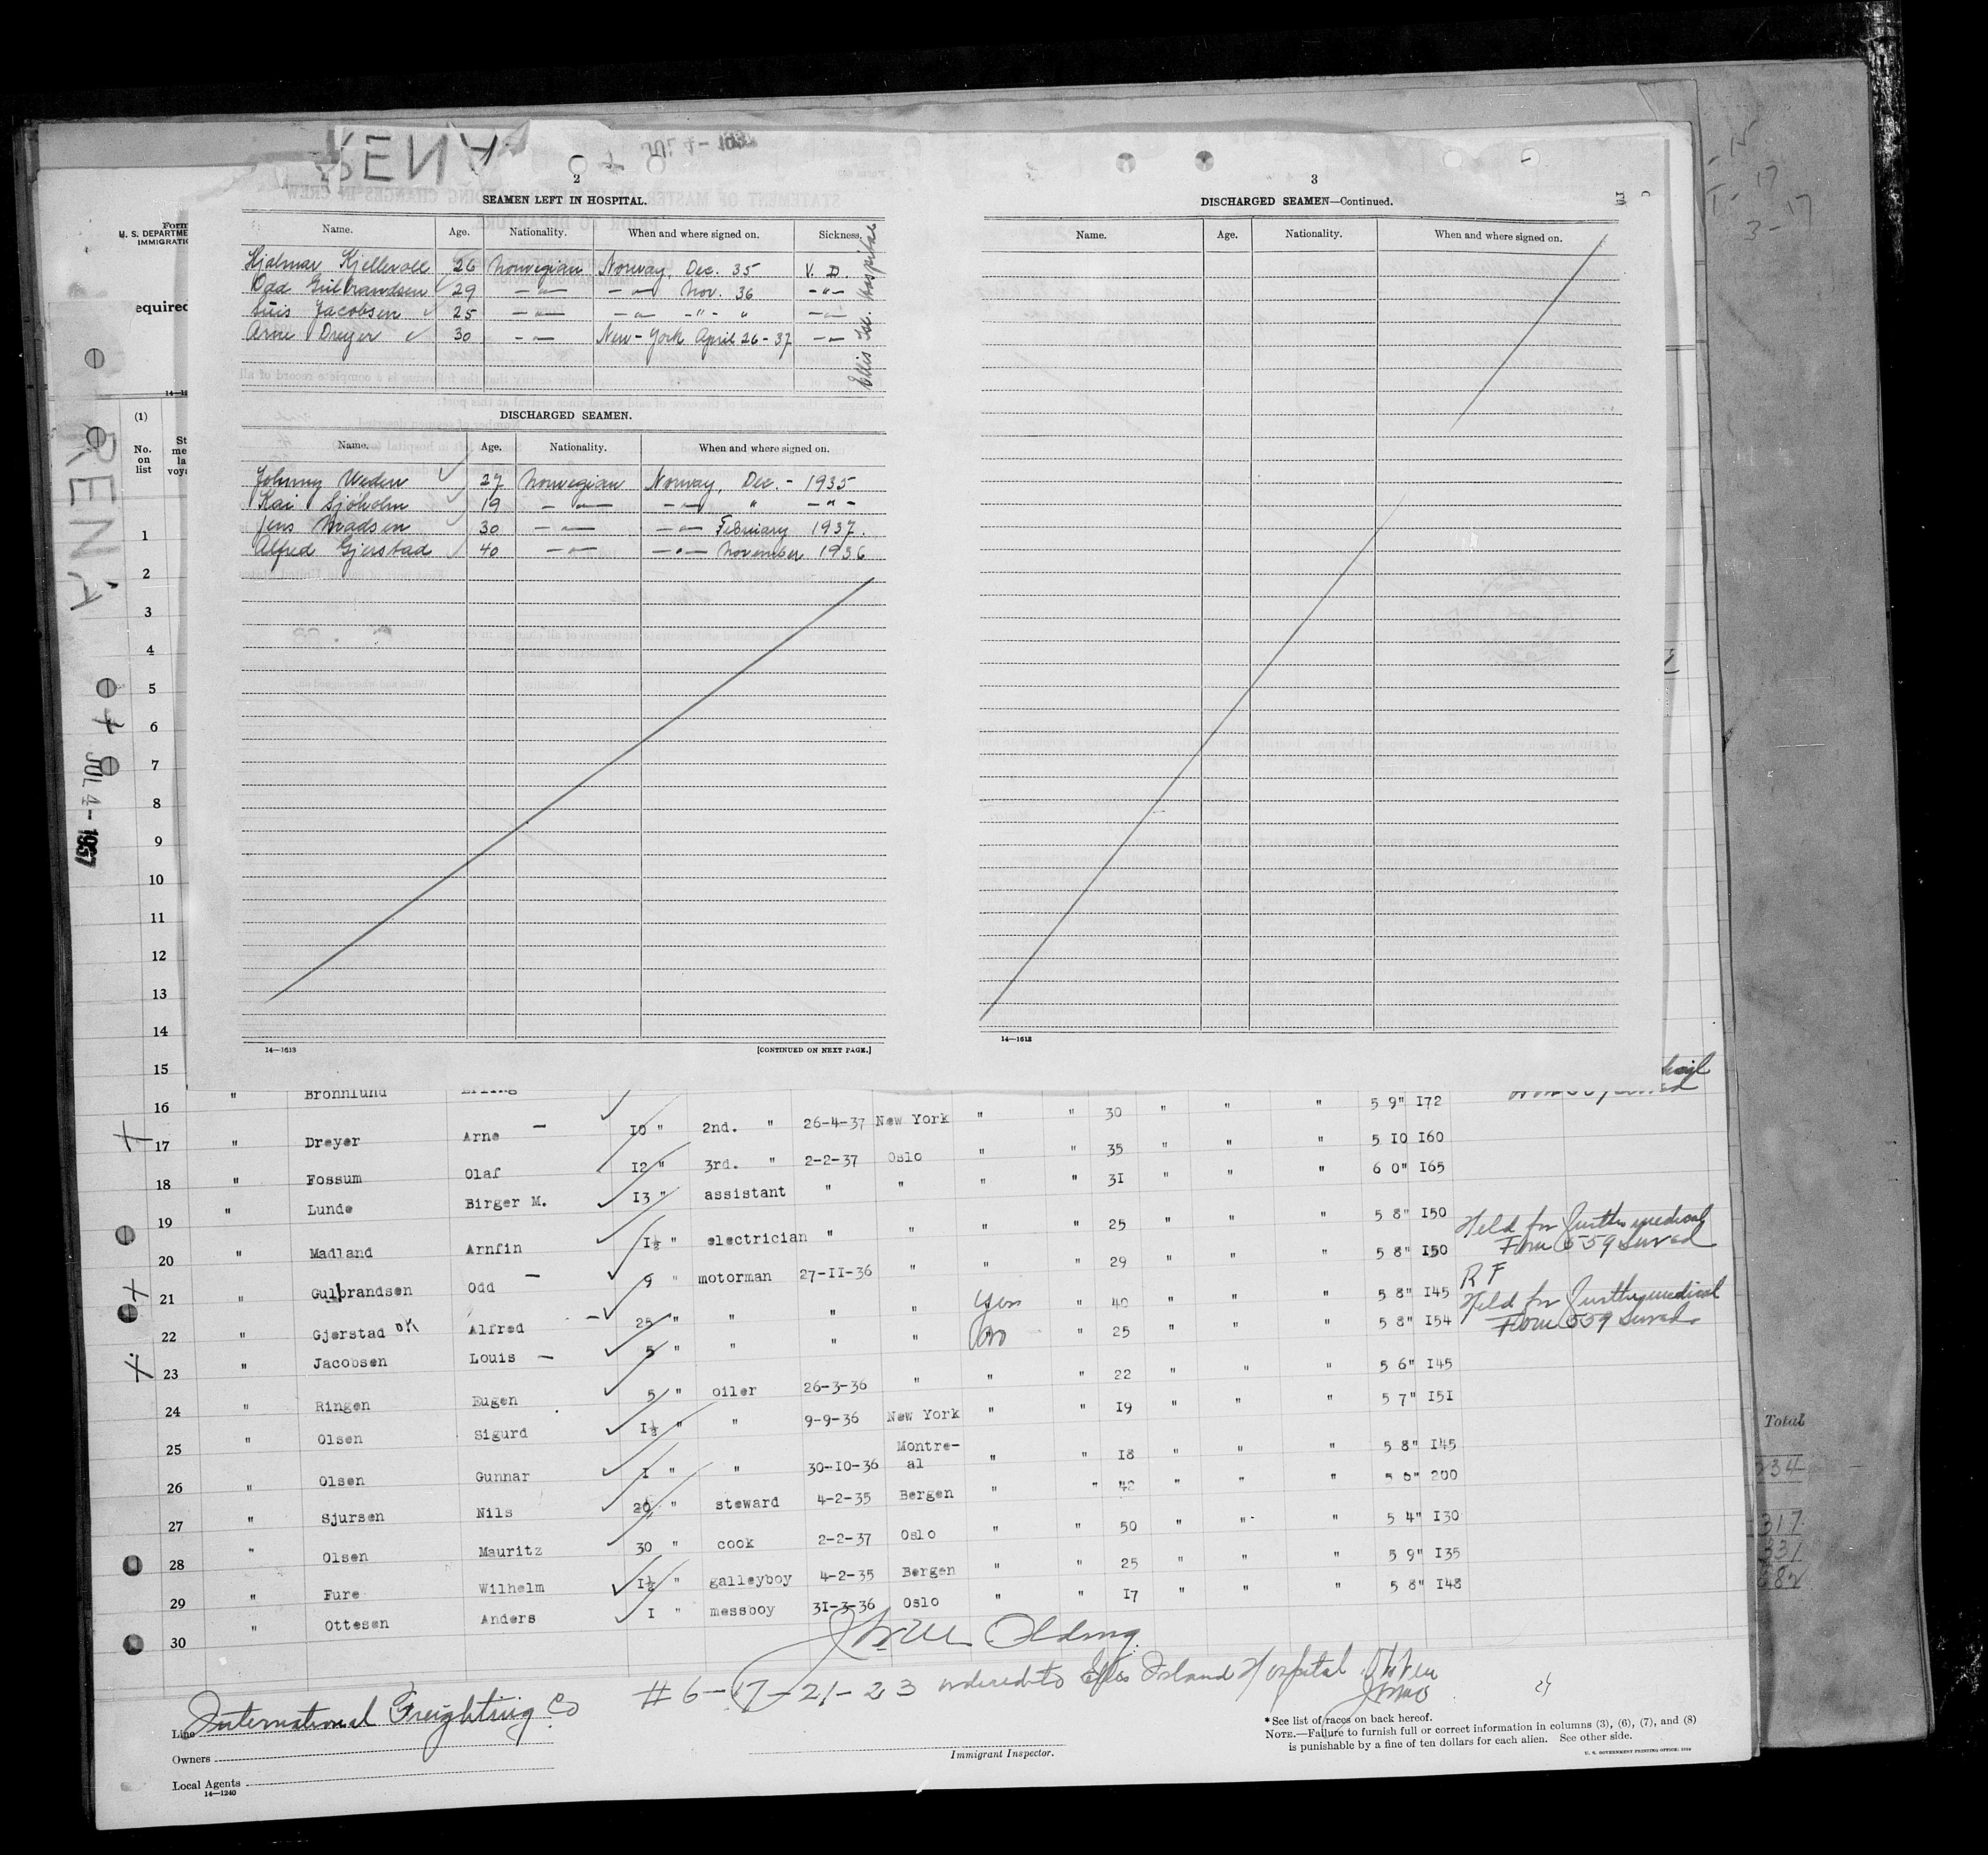 RENA
JUL 4 - 1937
2
SEAMEN LEFT IN HOSPITAL.
Name. Age. Nationality. When and where signed on. Sickness.
Hjalmar Kjellevold 26 Norwegian Norway, Dec. 35 V. D.
Odd Gulbrandsen 29 -"- -"- Nov. 36 -"-
Luis Jacobsen 25 -"- -"- -"- " -"-
Arne Dreyer 30 -"- New-York April 26-37 -"-
Ellis Isl. Hospital
DISCHARGED SEAMEN.
Name. Age. Nationality. When and where signed on.
Johnny Weden 27 Norwegian Norway, Dec. - 1935
Kai Sjøholm 19 -"- -"- " -"-
Jens Madsen 30 -"- -"- February 1937.
Alfred Gjerstad 40 -"- -"- November 1936
14—1613 [CONTINUED ON NEXT PAGE.]
3
DISCHARGED SEAMEN—Continued.
Name. Age. Nationality. When and where signed on.
14—1613
Form
U. S. DEPARTME
IMMIGRATIO
equired
14—12
(1)
No. on list
St
me
la
voya
RENA
JUL 4 - 1937
1
2
3
4
5
6
7
8
9
10
11
12
13
14
15
16 " Bronnlund Erling 10 " 2nd. " 26-4-37 New York " " 30 " " " 5 9" 172
17 " Dreyer Arne — 12 " 3rd. " 2-2-37 Oslo " " 35 " " " 5 10 160
18 " Fossum Olaf 13 " assistant " " " " 31 " " " 6 0" 165
19 " Lunde Birger M. 1½ " electrician " " " " 25 " " " 5 8" 150
20 " Madland Arnfin 9 " motorman 27-11-36 " " " 29 " " " 5 8" 150 Held for further medical Form 559 served
21 " Gulbrandsen Odd — 25 " " " " yes " 40 " " " 5 8" 145 R F
22 " Gjerstad OK Alfred — 5 " " " " no " 25 " " " 5 8" 154 Held for further medical Form 559 served
23 " Jacobsen Louis — 5 " oiler 26-3-36 " " " 22 " " " 5 6" 145
24 " Ringen Eugen 1½ " " 9-9-36 New York " " 19 " " " 5 7" 151
25 " Olsen Sigurd 1 " " 30-10-36 Montre-al " " 18 " " " 5 8" 145
26 " Olsen Gunnar 20 " steward 4-2-35 Bergen " " 42 " " " 5 8" 200
27 " Sjursen Nils 30 " cook 2-2-37 Oslo " " 50 " " " 5 4" 130
28 " Olsen Mauritz 1½ " galleyboy 4-2-35 Bergen " " 25 " " " 5 9" 135
29 " Fure Wilhelm 1 " messboy 31-3-36 Oslo " " 17 " " " 5 8" 148
30 " Ottesen Anders
# 6-17-21-23 ordered to Ellis Island Hospital
Line International Freighting Co
Owners
Local Agents
14—1240
Immigrant Inspector.
* See list of races on back hereof.
NOTE.—Failure to furnish full or correct information in columns (3), (6), (7), and (8)
is punishable by a fine of ten dollars for each alien. See other side.
Total
234
317
331
682